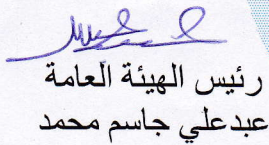 رئيس الهيئة العامة
عبدعلي جاسم محمد